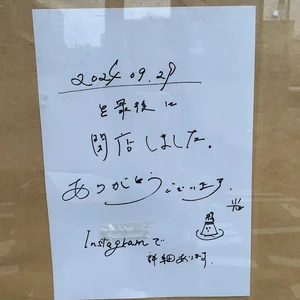 2024.09.29
を最後に
閉店しました。
ありがとうございます。
Instagramで
詳細あります。